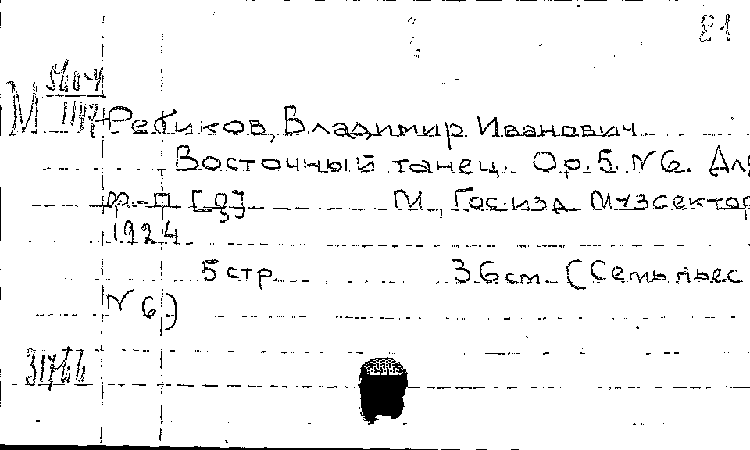 81
М 560-4
1147
Ребиков, Владимир Иванович
Восточный танец. Ор. 5 № 6. Для
ф-п [Д] М., Госизд Музсектор
1924
5 стр 36 см. (Семь пьес
№ 6)
31766